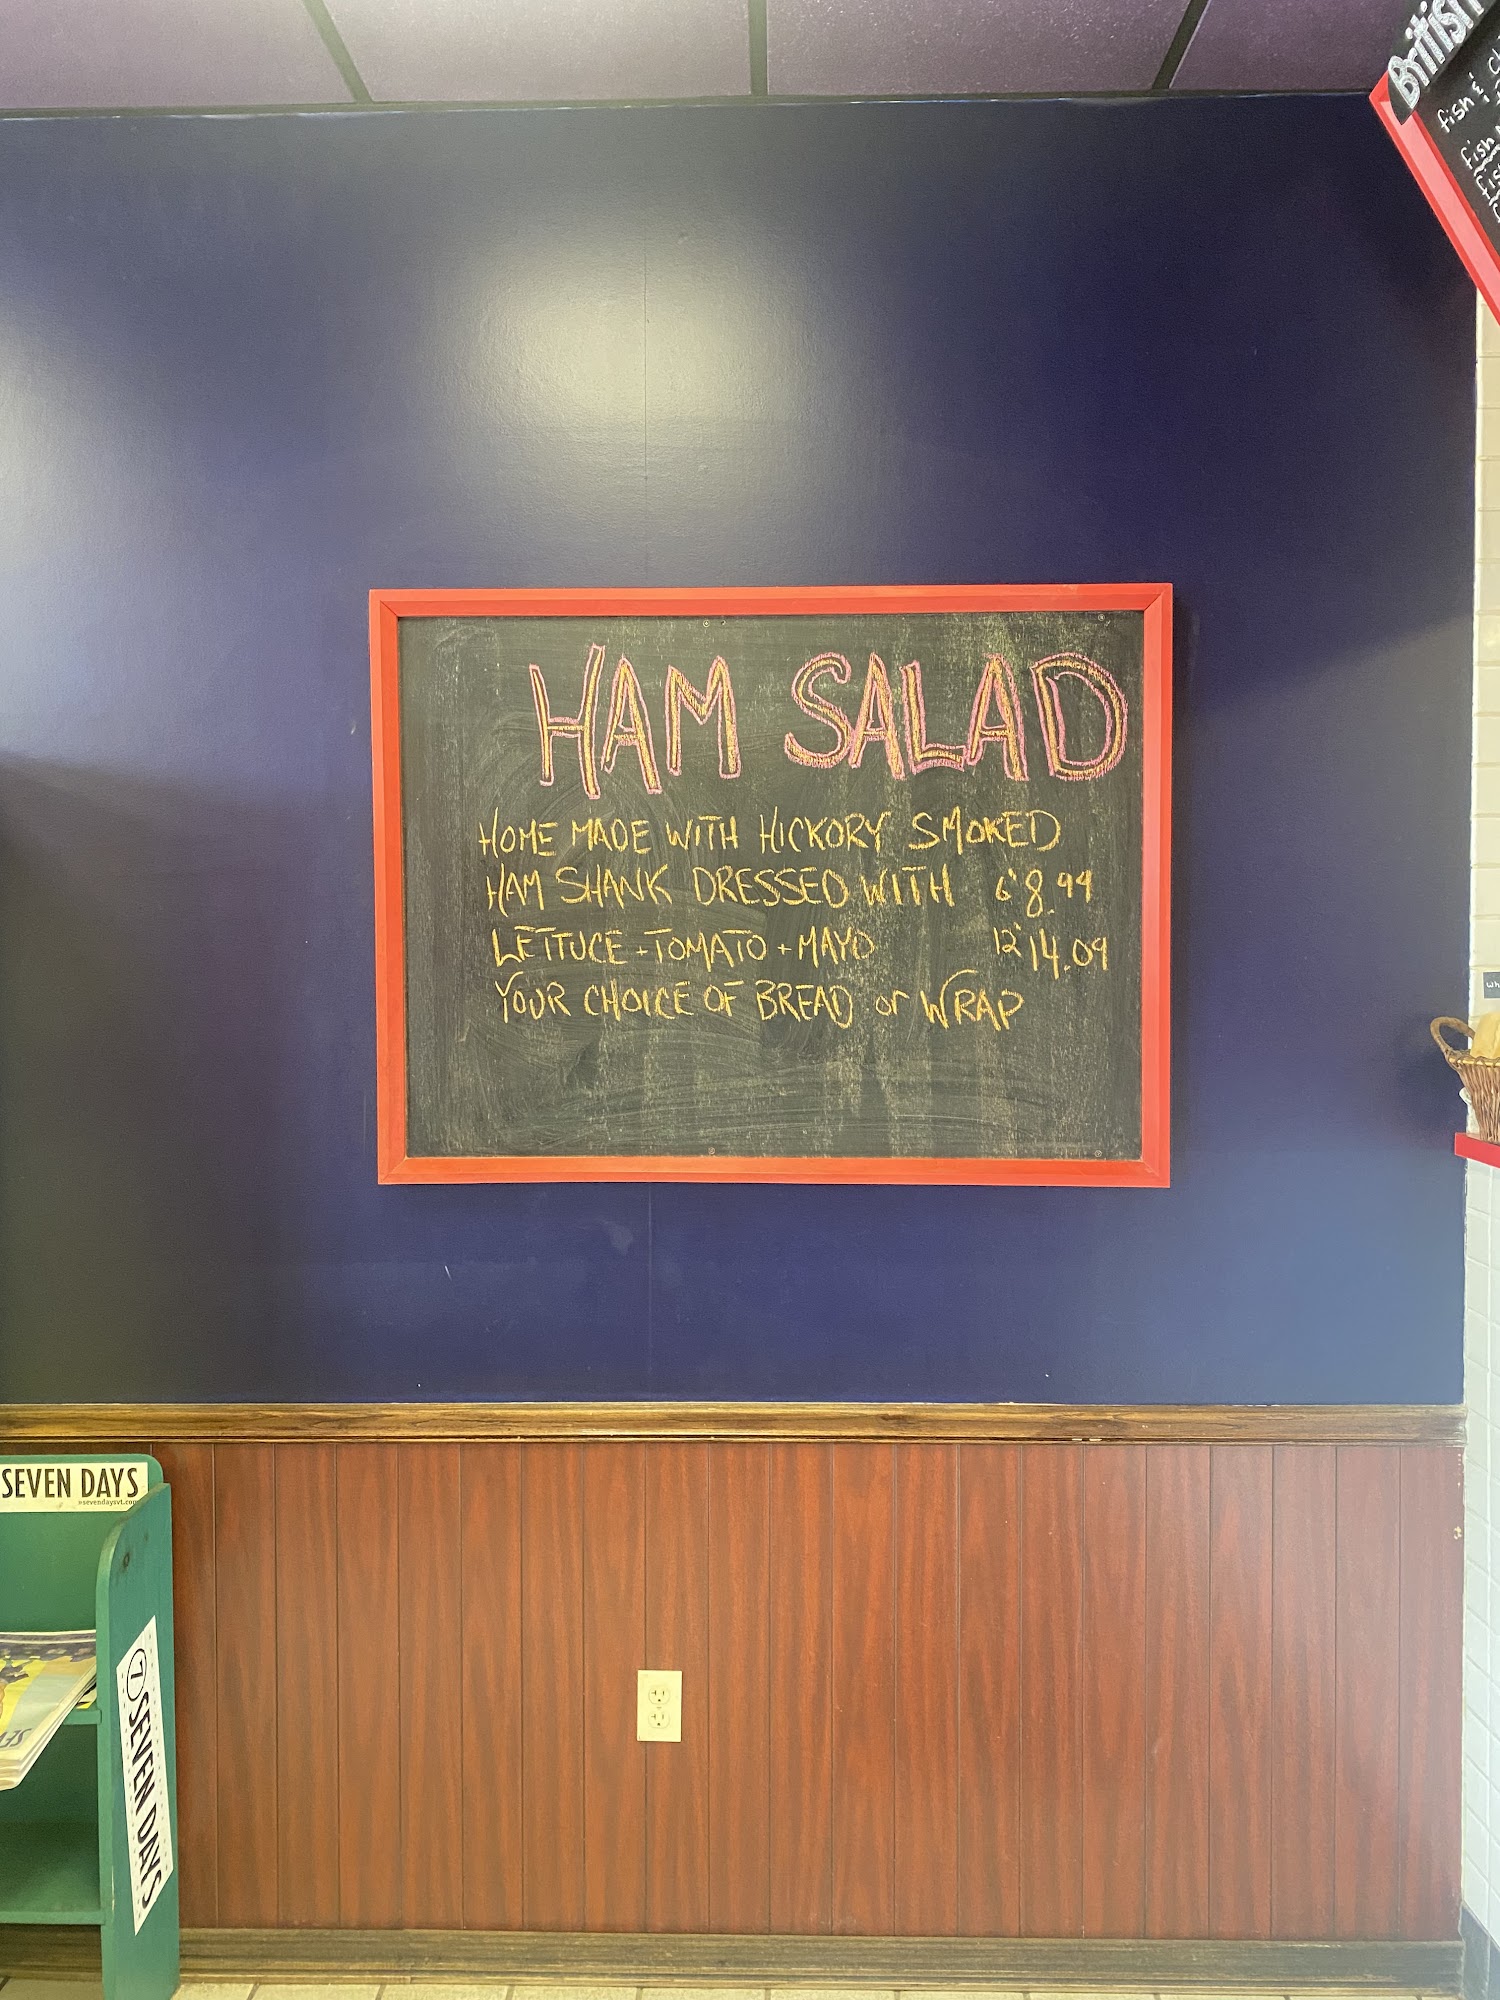 British
fish &
fish
HAM SALAD
HOME MADE WITH HICKORY SMOKED
HAM SHANK DRESSED WITH 6" 8.99
LETTUCE + TOMATO + MAYO 12" 14.09
YOUR CHOICE OF BREAD or WRAP
SEVEN DAYS
sevendaysvt.com
7 SEVEN DAYS